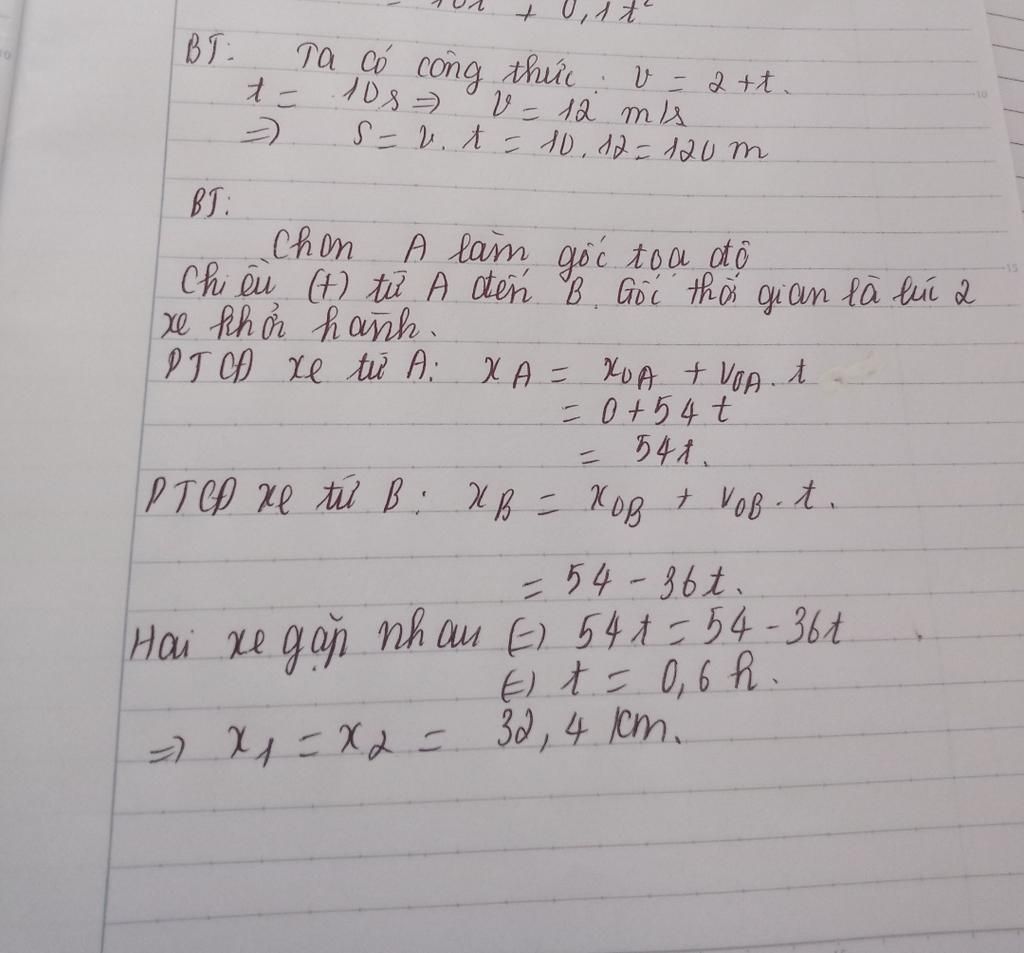 = 10t + 0,1t²
BT: Ta có công thức: v = 2+t.
t = 10s => v = 12 m/s
=> s = v. t = 10.12 = 120 m
BT:
Chọn A làm gốc tọa độ
Chiều (+) từ A đến B. Gốc thời gian là lúc 2
xe khởi hành.
PTCĐ xe từ A: xA = x0A + v0A. t
= 0 + 54 t
= 54t.
PTCĐ xe từ B: xB = x0B + v0B. t.
= 54 - 36t.
Hai xe gặp nhau (=) 54t = 54 - 36t
(=) t = 0,6 h.
=> x1 = x2 = 32,4 km.